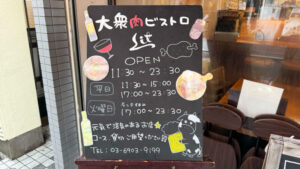 大衆肉ビストロ
OPEN
11:30～23:30
平日
11:30～15:00
17:00～23:30
火曜日
17:00～23:30
元気で活気のあるお店
コース、貸切ご希望ください
TEL:03-6903-9199